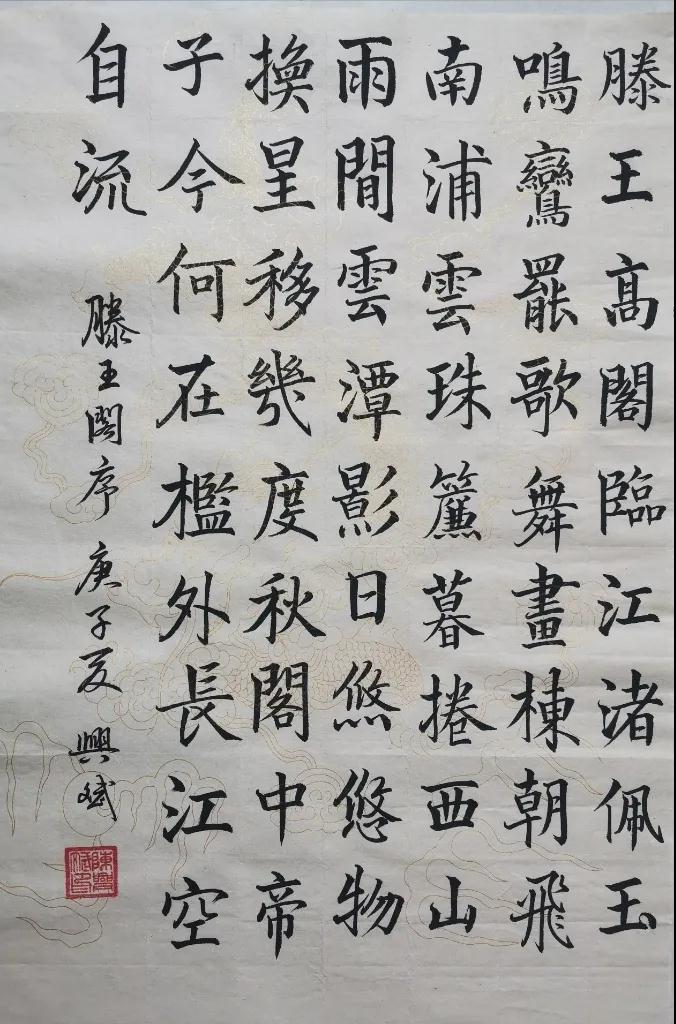 滕王髙閣臨江渚佩玉
鳴鸞罷歌舞畫棟朝飛
南浦雲珠簾暮捲西山
雨閒雲潭影日悠悠物
換星移幾度秋閣中帝
子今何在檻外長江空
自流
滕王閣序 庚子夏 興斌
陳興斌印